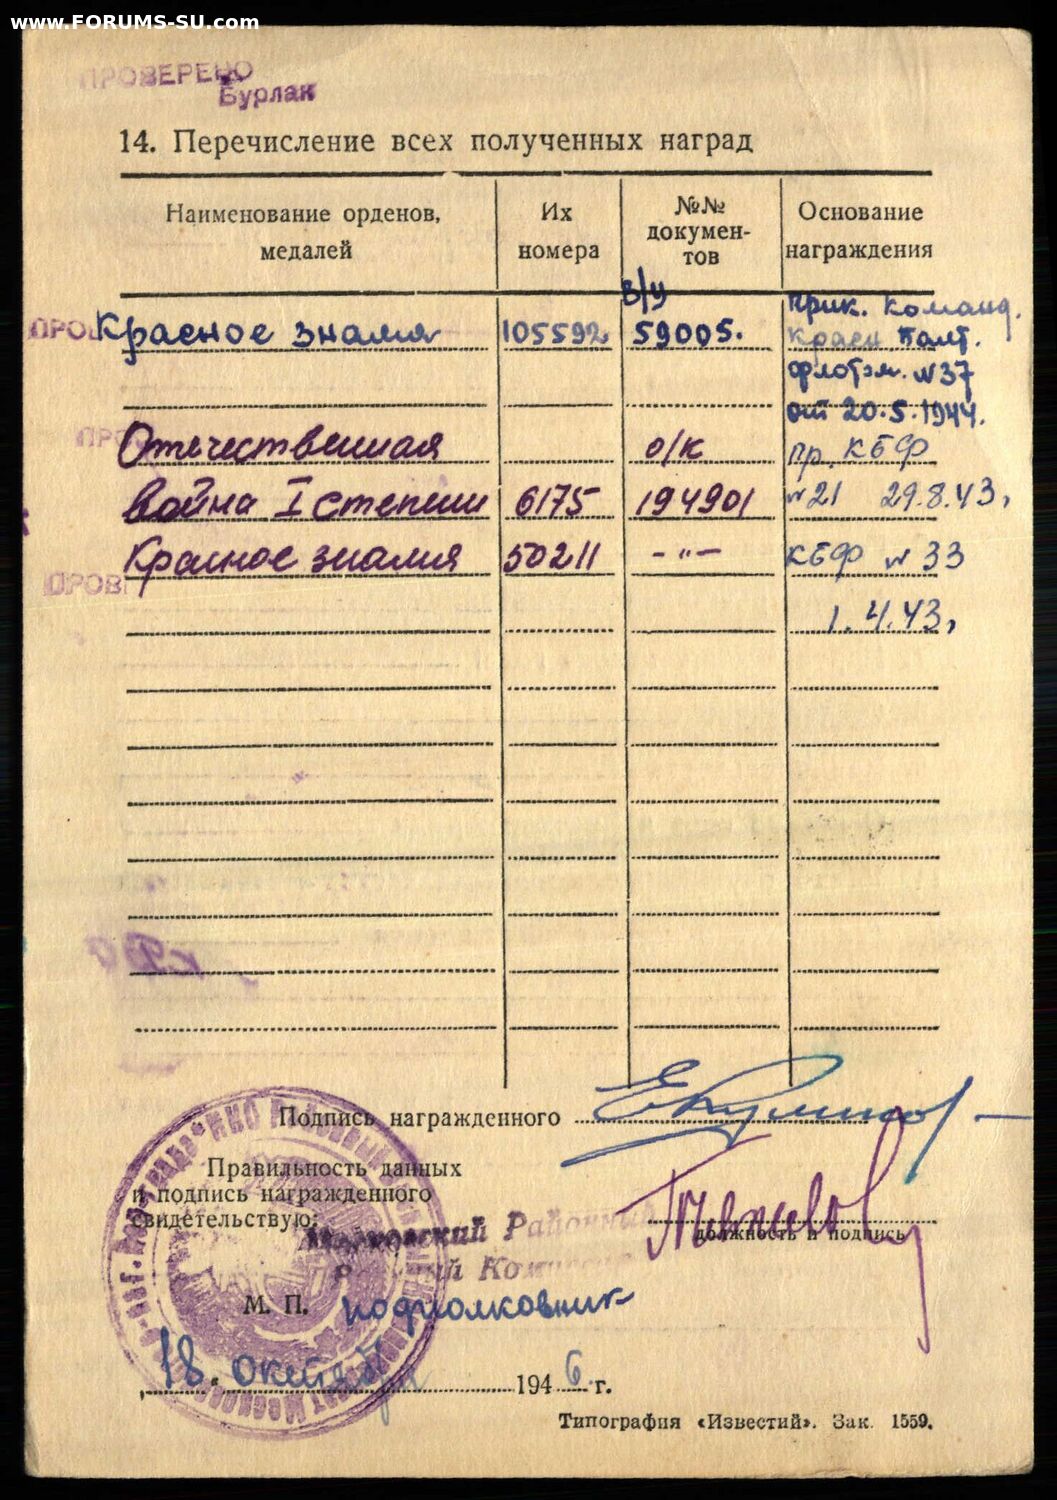 www.FORUMS-SU.com
ПРОВЕРЕНО
Бурлак
14. Перечисление всех полученных наград
Наименование орденов, медалей
Их номера
№№ докумен-тов
Основание награждения
В/У
Прик. Команд.
ПРОВ Красное знамя 105592 59005. Красн Балт.
флотом. N 37
от 20.5.1944.
ПРОВ Отечественная о/к пр. КБФ
Война I степени 6175 194901 N 21 29.8.43,
Красное знамя 50211 -"- КБФ N 33
ПРОВ
1.4.43,
Подпись награжденного
Правильность данных
и подпись награжденного
свидетельствую:
Московский Районный
должность и подпись
М. П. подполковник
18. октября 1946 г.
Типография «Известий». Зак. 1559.